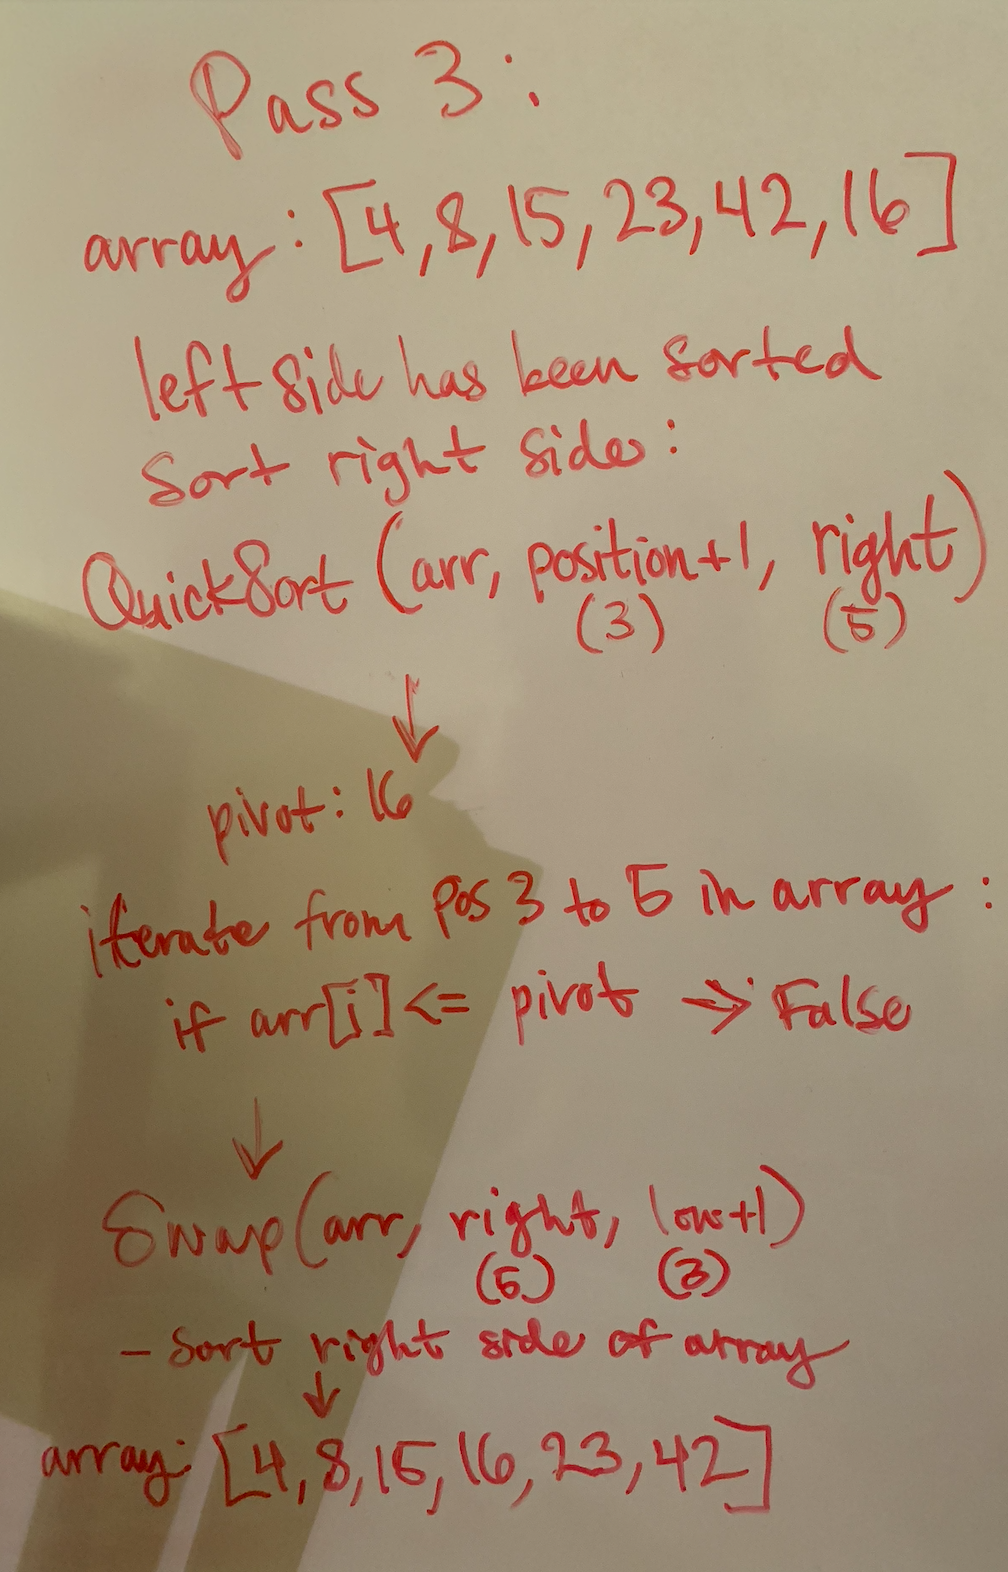 Pass 3:
array: [4,8,15,23,42,16]
left side has been sorted
Sort right side:
QuickSort (arr, position+1, right)
(3) (5)
↓
pivot: 16
iterate from pos 3 to 5 in array:
if arr[i] <= pivot → False
↓
Swap(arr, right, low+1)
(5) (3)
- Sort right side of array
↓
array: [4,8,15,16,23,42]